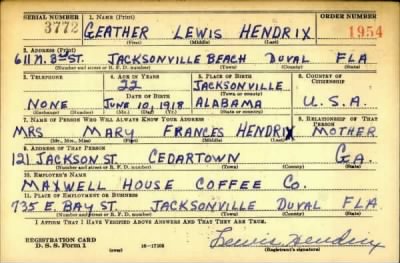 SERIAL NUMBER 1. NAME (Print) ORDER NUMBER
3772 GEATHER LEWIS HENDRIX 1954
(First) (Middle) (Last)
2. ADDRESS (Print)
611 N. 3RD ST. JACKSONVILLE BEACH DUVAL FLA
(Number and street or R. F. D. number) (Town) (County) (State)
3. TELEPHONE 4. AGE IN YEARS 5. PLACE OF BIRTH 6. COUNTRY OF CITIZENSHIP
22 JACKSONVILLE
DATE OF BIRTH (Town or county)
NONE JUNE 10, 1918 ALABAMA U.S.A.
(Exchange) (Number) (Mo.) (Day) (Yr.) (State or country)
7. NAME OF PERSON WHO WILL ALWAYS KNOW YOUR ADDRESS 8. RELATIONSHIP OF THAT PERSON
MRS MARY FRANCES HENDRIX MOTHER
(Mr., Mrs., Miss) (First) (Middle) (Last)
9. ADDRESS OF THAT PERSON
121 JACKSON ST. CEDARTOWN GA.
(Number and street or R. F. D. number) (Town) (County) (State)
10. EMPLOYER'S NAME
MAXWELL HOUSE COFFEE Co.
11. PLACE OF EMPLOYMENT OR BUSINESS
735 E. BAY ST. JACKSONVILLE DUVAL FLA
(Number and street or R. F. D. number) (Town) (County) (State)
I AFFIRM THAT I HAVE VERIFIED ABOVE ANSWERS AND THAT THEY ARE TRUE.
REGISTRATION CARD
D. S. S. Form 1 (over) 16-17105 Lewis Hendrix